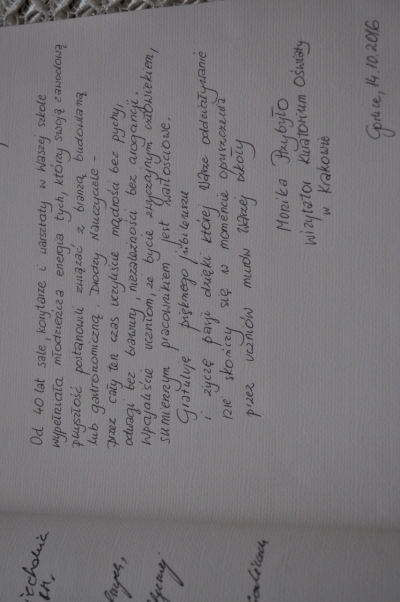 Od 40 lat sale, korytarze i warsztaty w Waszej szkole
wypełniała młodzieńcza energia tych, którzy swoją zawodową
przyszłość postanowili związać z branżą budowlaną
lub gastronomiczną. Drodzy Nauczyciele -
przez cały ten czas uczyliście mądrości bez pychy,
odwagi bez brawury, niezależności bez arogancji.
Wpajaliście uczniom, że bycie zwyczajnym człowiekiem,
sumiennym pracownikiem jest wartościowe.
Gratuluję pięknego jubileuszu
i życzę pasji dzięki której Wasze oddziaływanie
nie skończy się w momencie opuszczenia
przez uczniów murów Waszej szkoły
Monika Przybyło
wizytator Kuratorium Oświaty
w Krakowie
Gorlice, 14.10.2016